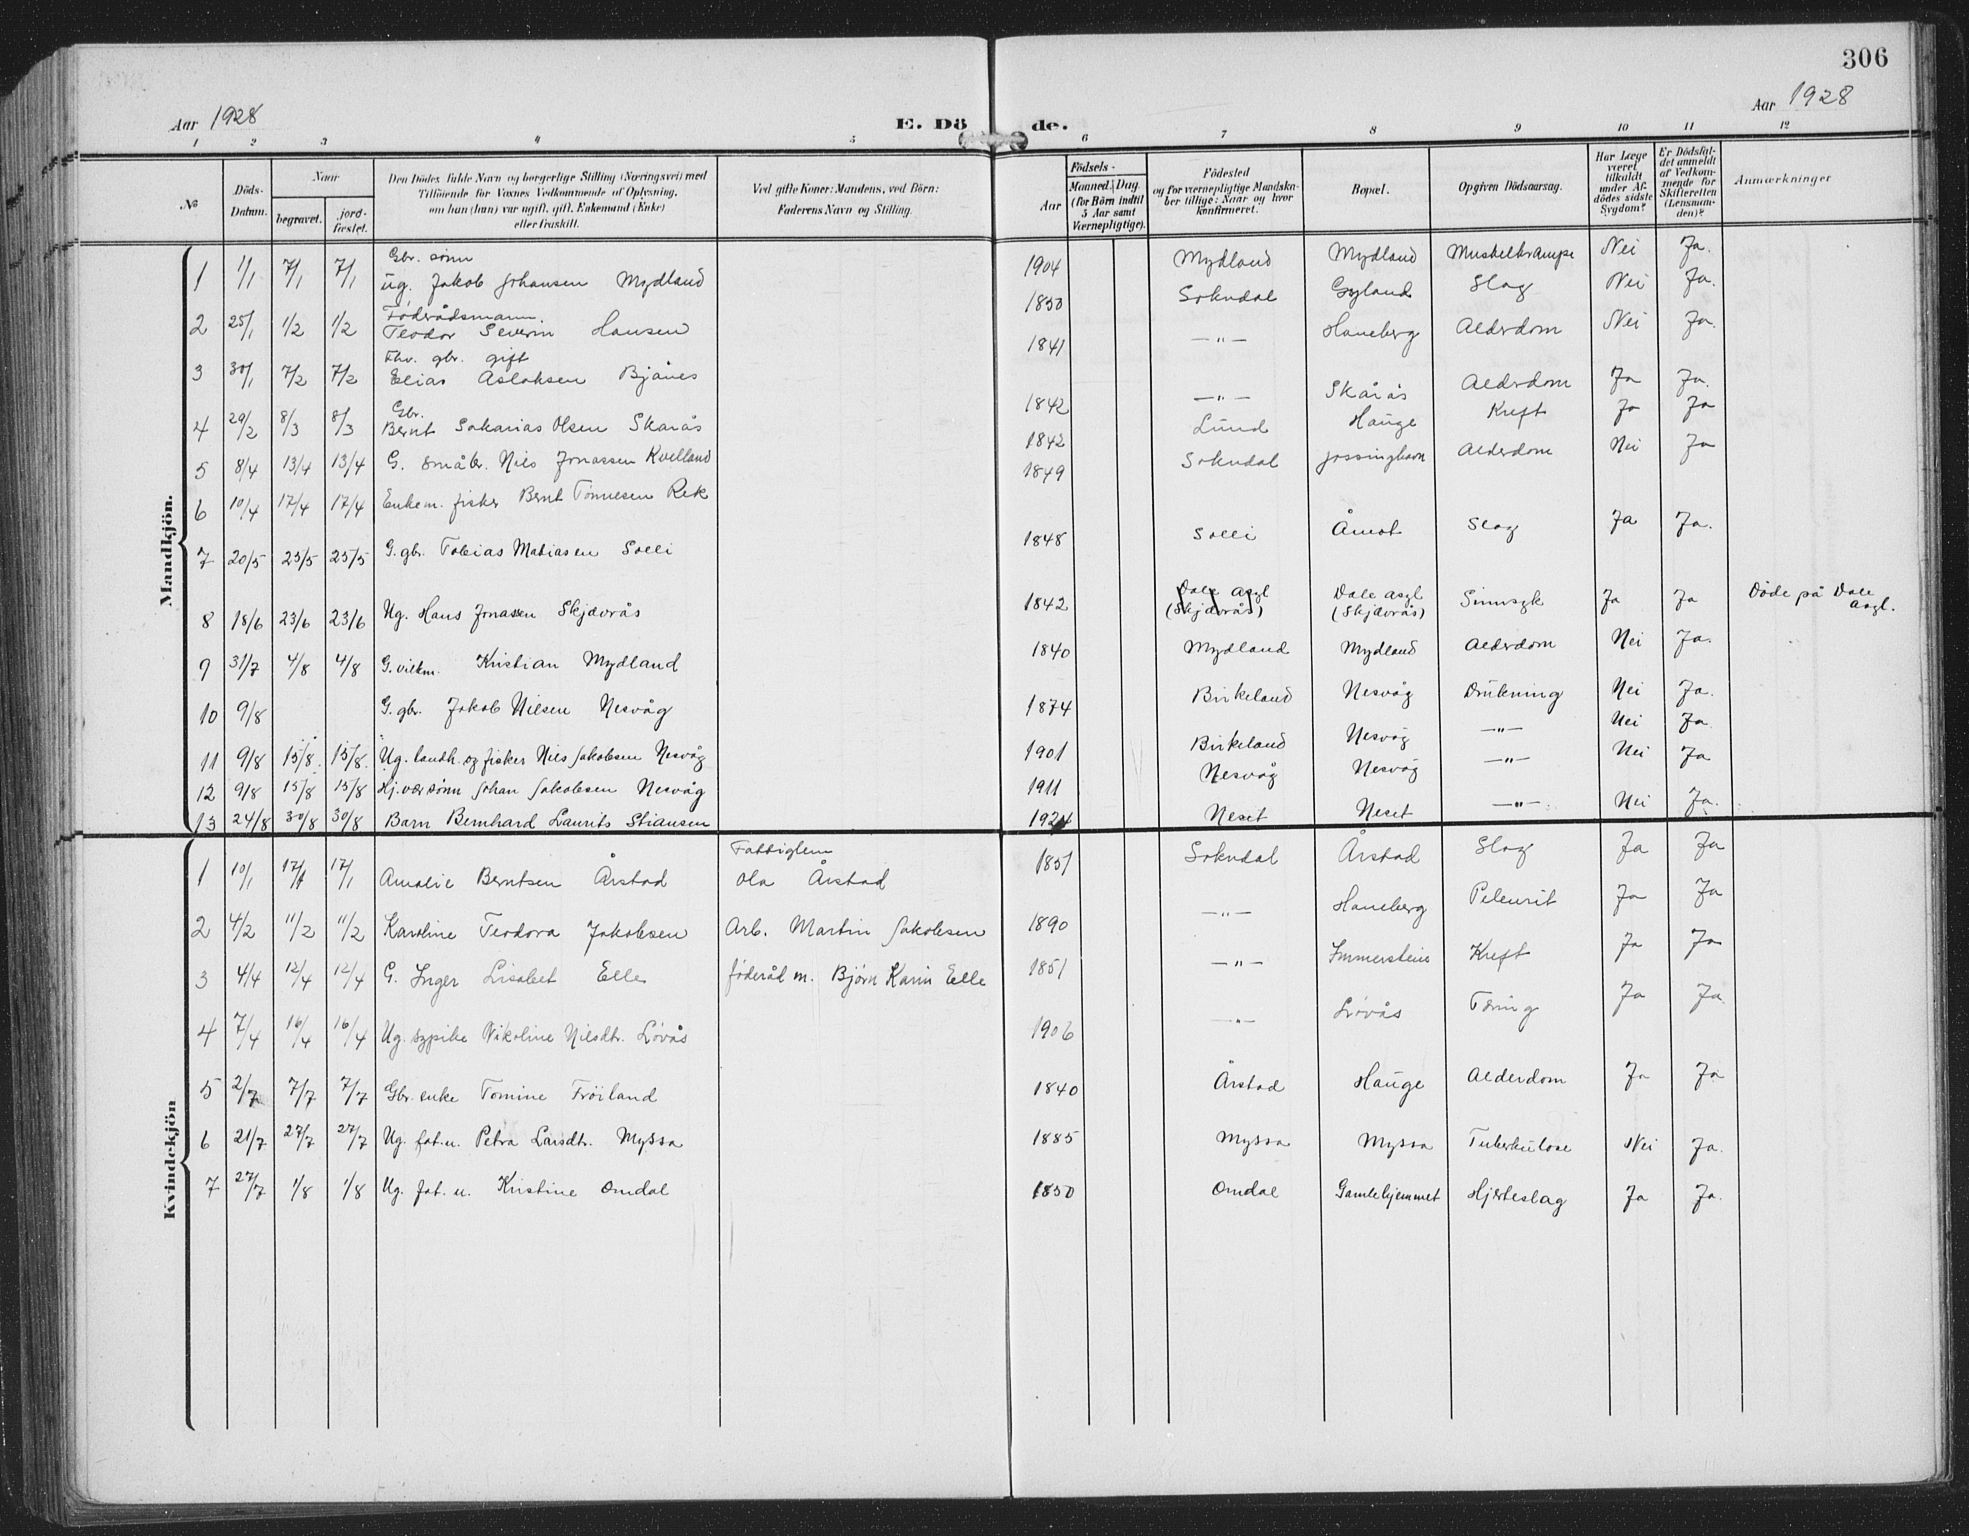 306
Aar 1928
E. Dö de.
Aar 1928
1 2 3 4 5 6 7 8 9 10 11 12
№
Döds-Datum.
Naar
begravet.
jord-fæstet.
Den Dödes fulde Navn og borgerlige Stilling (Næringsvei) med
Tilföiende for Voxnes Vedkommende af Oplysning,
om han (hun) var ugift, gift, Enkemand (Enke)
eller fraskilt.
Ved gifte Koner: Mandens, ved Börn:
Faderens Navn og Stilling.
Födsels-
Aar
Maaned. Dag
(for Börn indtil
5 Aar samt
Værnepligtige).
Födested
og for værnepligtige Mandska-
ber tillige: Naar og hvor
konfirmeret.
Bopæl.
Opgiven Dödsaarsag.
Har Læge
været
tilkaldt
under Af-
dödes sidste
Sygdom?
Er Dödsfal-
det anmeldt
af Vedkom-
mende for
Skifteretten
(Lensman-
den)?
Anmærkninger
Mandkjön.
Gbr. sønn
1 1/1 7/1 7/1 ug. Jakob Johansen Mydland 1904 Mydland Mydland Muskelkrampe Nei Ja.
Føderådsmann.
2 25/1 1/2 1/2 Teodor Severin Hansen 1850 Sokndal Gyland Slag Nei Ja.
Fhv. gbr. gift
3 30/1 7/2 7/2 Elias Aslaksen Bjånes 1841 —"— Haneberg Alderdom Nei Ja.
Gbr.
4 29/2 8/3 8/3 Bernt Sakarias Olsen Skarås 1842 —"— Skårås Alderdom Ja Ja.
5 8/4 13/4 13/4 G. småbr. Nils Jonassen Kvelland 1842 Lund Hauge Kreft Ja Ja
6 10/4 17/4 17/4 Enkem. fisker Bernt Tønnesen Rek 1849 Sokndal Jøssinghavn Alderdom Nei Ja
7 20/5 25/5 25/5 G. gbr. Tobias Matiasen Solli 1848 Solli Åmot Slag Ja Ja.
8 18/6 23/6 23/6 Ug. Hans Jonassen Skjævrås 1842 Dale Asyl (Skjævrås) Dale asyl (Skjævrås) Sinnsyk Ja Ja Døde på Dale Asyl.
9 31/7 4/8 4/8 G. Kristian Mydland 1840 Mydland Mydland Alderdom Nei Ja.
10 9/8 G. gbr. Jakob Nilsen Nesvåg 1874 Birkeland Nesvåg Drukning Nei Ja.
11 9/8 15/8. 15/8. Ug. landh. og fisker Nils Jakobsen Nesvåg 1901 Birkeland Nesvåg —"— Nei Ja.
12 9/8 15/8 15/8 Hj.vær sønn Johan Jakobsen Nesvåg 1911 Nesvåg Nesvåg —"— Nei Ja
13 24/8 30/8 30/8 Barn Bernhard Laurits Stiansen 1924 Neset Neset —"— Nei Ja.
Kvindekjön
Fattiglem
1 10/1 17/1 17/1 Amalie Berntsen Årstad Ola Årstad 1851 Sokndal Årstad Slag Ja Ja
2 4/2 11/2 11/2 Karoline Teodora Jakobsen Arb. Martin Jakobsen 1890 —"— Haneberg Pleurit Ja Ja
3 4/4 12/4 12/4 G. Inger Lisabet Elle føderåd m. Bjørn Karin Elle 1851 —"— Immerstein Kreft Ja Ja
4 7/4 16/4 16/4 Ug. sypike Nikoline Nilsdtr. Løvås 1906 —"— Løvås Tæring Ja Ja.
5 2/7 7/7 7/7 Gbr. enke Tomine Frøiland 1840 Årstad Hauge Alderdom Ja Ja
6 21/7 27/7 27/7 Ug. fat. u. Petra Larsdtr. Myssa 1885 Myssa Myssa Tuberkulose Nei Ja.
7 27/7 1/8 1/8 Ug. fat. u. Kristine Omdal 1850 Omdal Gamlehjemmet Hjerteslag Ja Ja.